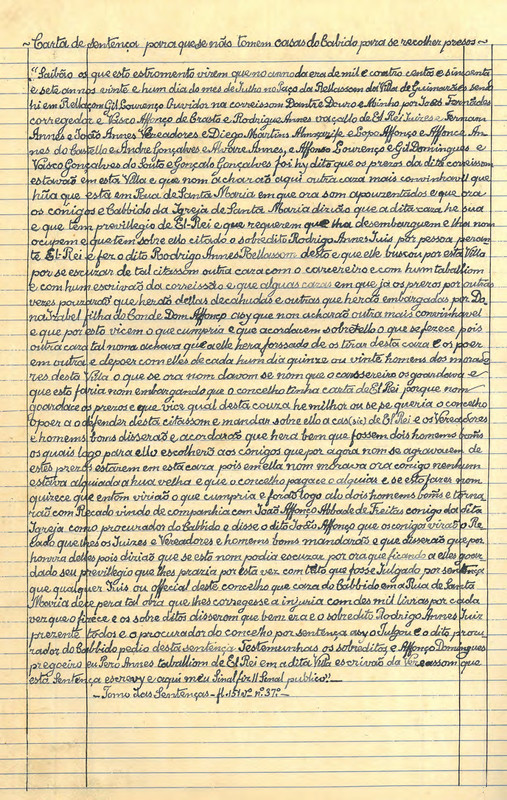 ~Carta de sentença para que se não tomem casas do Cabido para se recolher presos~
"Saibão os que esto estromento virem que no anno da era de mil e coatro centos e sincoenta
e sete annos vinte e hum dia do mes de Julho no Paço da Rellassom da Villa de Guimarães sendo
hi em Rellaçom Gil Lourenço Ouvidor na correissom Dantre Douro e Minho por Joes Fernãdes
corregedor e Vasco Affonço de Crasto e Rodrigue Annes vaçallo de El Rei Juires e Fernam
Annes e João Annes Vereadores e Diego Martins Almoxrife e Lopo Affonço e Affonce An-
nes do Castello e Andre Gonçalves e Alvore Annes, e Affonso Lourenço e Gil Domingues e
Vasco Gonçalves do Souto e Gonçalo Gonçalves foi hy dito que os prezos da dita coreissom
estavão em esta Villa e que nom achar ao aqui outra caza mais convinhavel que
hũa que está em Rua de Santa Maria em que ora som apouzentados e que ora
os conigos e Cabbido da Igreja de Santa Maria dizião que a dita caza he sua
e que tem previllegio de El-Rei e que requerem que lha desembarguem e lha nom
ocupem e que tem sobre ello citado o sobredito Rodrigo Annes Juis por pessoa peran-
te El-Rei e fer o dito Rodrigo Annes Rellassom desto e que elle buscou por esta Villa
por se escuzar de tal citassom outra caza com o carcereiro e com hum taballiom
e com hum escrivão da correissão e que alguas cazas em que ja os prezos por outras
vezes pouzarão que herão dellas decahudas e outras que herão embargadas por Do-
na Izabel filha do Conde Dom Affonço assy que nom acharão outra mais convinhavel
e que por esto vicem o que cumpria e que acordacem sobrello o que se fezece pois
outra caza tal nom a achava que a elle hera forssado de os tirar desta caza e os poer
em outra e depoer com elles de cada hum dia quinze ou vinte homens dos morado-
res desta Villa o que se ora nom davom se nom que o carssereiro os goardava e
que esto faria nom embargando que o concelho tinha carta de El Rei porque nom
goardace os prezos e que vice qual desta couza he milhor ou se se queria o concelho
opoer a o defender desta citassom e mandar sobre ello a cas(sic) de El Rei e os Vereadores
e homens bons disserão e acordarão que hera bem que fossem dois homens bons
os quais logo para ello escolherão aos conigos que por agora nom se agravacem de
estes prezos estarem em esta caza pois em ella nom morava ora conigo nenhum
estava alquiada a hua velha e que o concelho pagace o alquier e se esto fazer nom
quizece que entom virião o que cumpria e forão logo alo dois homens bons e torna-
rão com Recado vindo de companhia com João Affonço Abbade de Freitas conigo da dita
Igreja como procurador do Cabbido e disse o dito João Affonço que os conigos virão o Re-
cado que lhes os Juizes e Vereadores e homens bons mandarão e que disserão que por
honrra delles pois dizião que se esto nom podia escuzar por ora que ficando a elles goar-
dado seu previllegio que lhes prazia por esta vez com tanto que fosse Julgado por sentença
que qualquer Juis ou official deste concelho que caza do Cabbido em a Rua de Santa
Maria dece pera tal obra que lhes corregesse a injuria com des mil livras por cada
vez que o fizece e os sobre ditos disserom que bem era e o sobredito Rodrigo Annes Juiz
prezente todos e o procurador do concelho por sentença assy o Julgou e o dito procu-
rador do Cabbido pedio desta sentença. Testemunhas os sobreditos e Affonço Domingues
pregoeiro eu Pero Annes taballiom de El Rei em a dita Villa escrivão da Vereassom que
esta sentença escrevy e aqui meu sinal fiz // Sinal publico"—
—Tomo I das Sentenças - fl. 151 vº nº 37º—